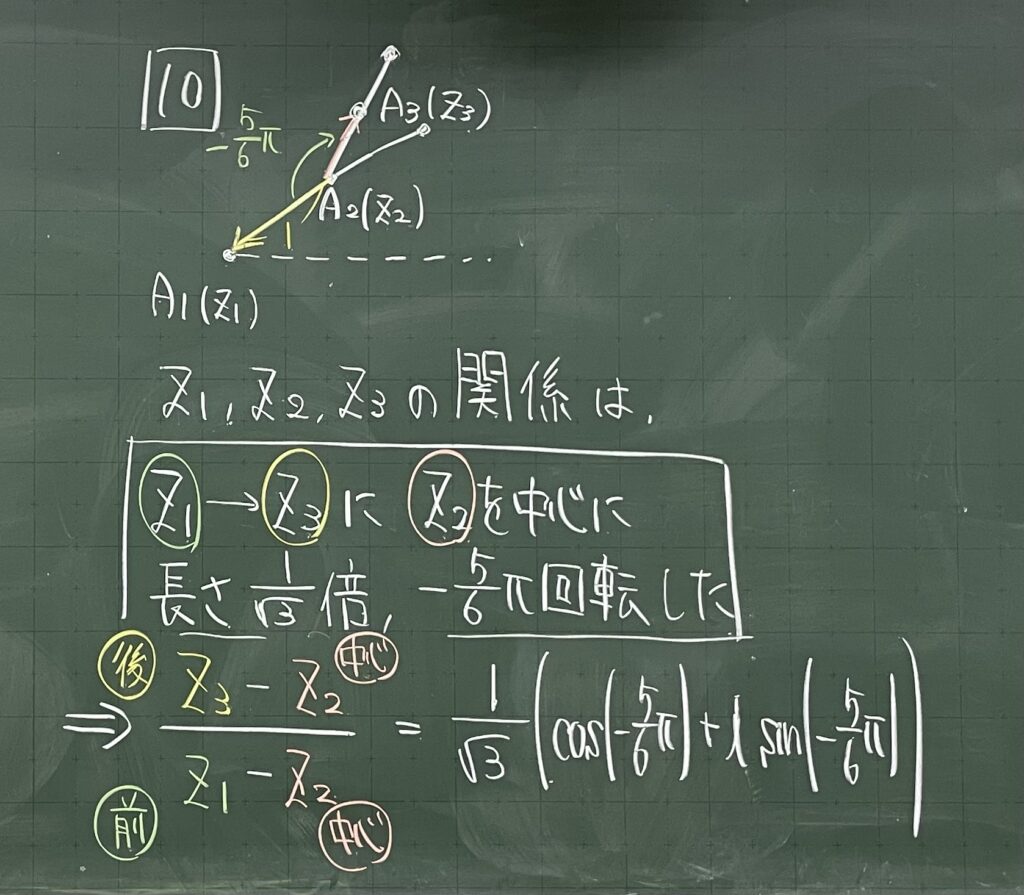 10
A3(Z3)
-5/6π
A2(Z2)
1
A1(Z1)
Z1, Z2, Z3 の関係は,
Z1→Z3 に Z2を中心に
長さ 1/√3 倍, -5/6π回転した
後 Z3-Z2 中心
⇒ ―― = 1/√3 (cos(-5/6π)+i sin(-5/6π))
前 Z1-Z2 中心